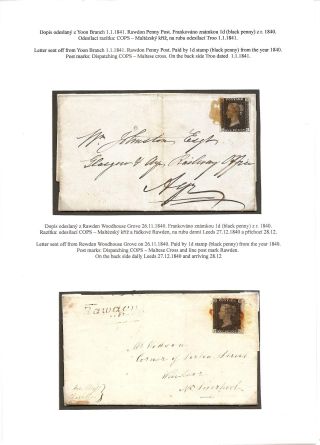 Dopis odeslaný z Yoon Branch 1.1.1841. Rawdon Penny Post. Frankováno známkou 1d (black penny) z r. 1840.
Odesílací razítko COPS – Maltézský kříž, na rubu odesílací Troo 1.1.1841.
Letter sent off from Yoon Branch 1.1.1841. Rawdon Penny Post. Paid by 1d stamp (black penny) from the year 1840.
Post marks: Dispatching COPS – Maltese cross. On the back side Troo dated 1.1.1841.
Wm Johnston Esqr
Glasgow & Ayr Railway Office
Ayr
Dopis odeslaný z Rawden Woodhouse Grove 26.11.1840. Frankováno známkou 1d (black penny) z r. 1840.
Razítko: odesílací COPS – Maltézský kříž a řádkové Rawden, na rubu denní Leeds 27.12.1840 a příchozí 28.12.
Letter sent off from Rawden Woodhouse Grove on 26.11.1840. Paid by 1d stamp (black penny) from the year 1840.
Post marks: Dispatching COPS – Maltese Cross and line post mark Rawden.
On the back side daily Leeds 27.12.1840 and arriving 28.12
Rawdon
Corner of Street
Liverpool